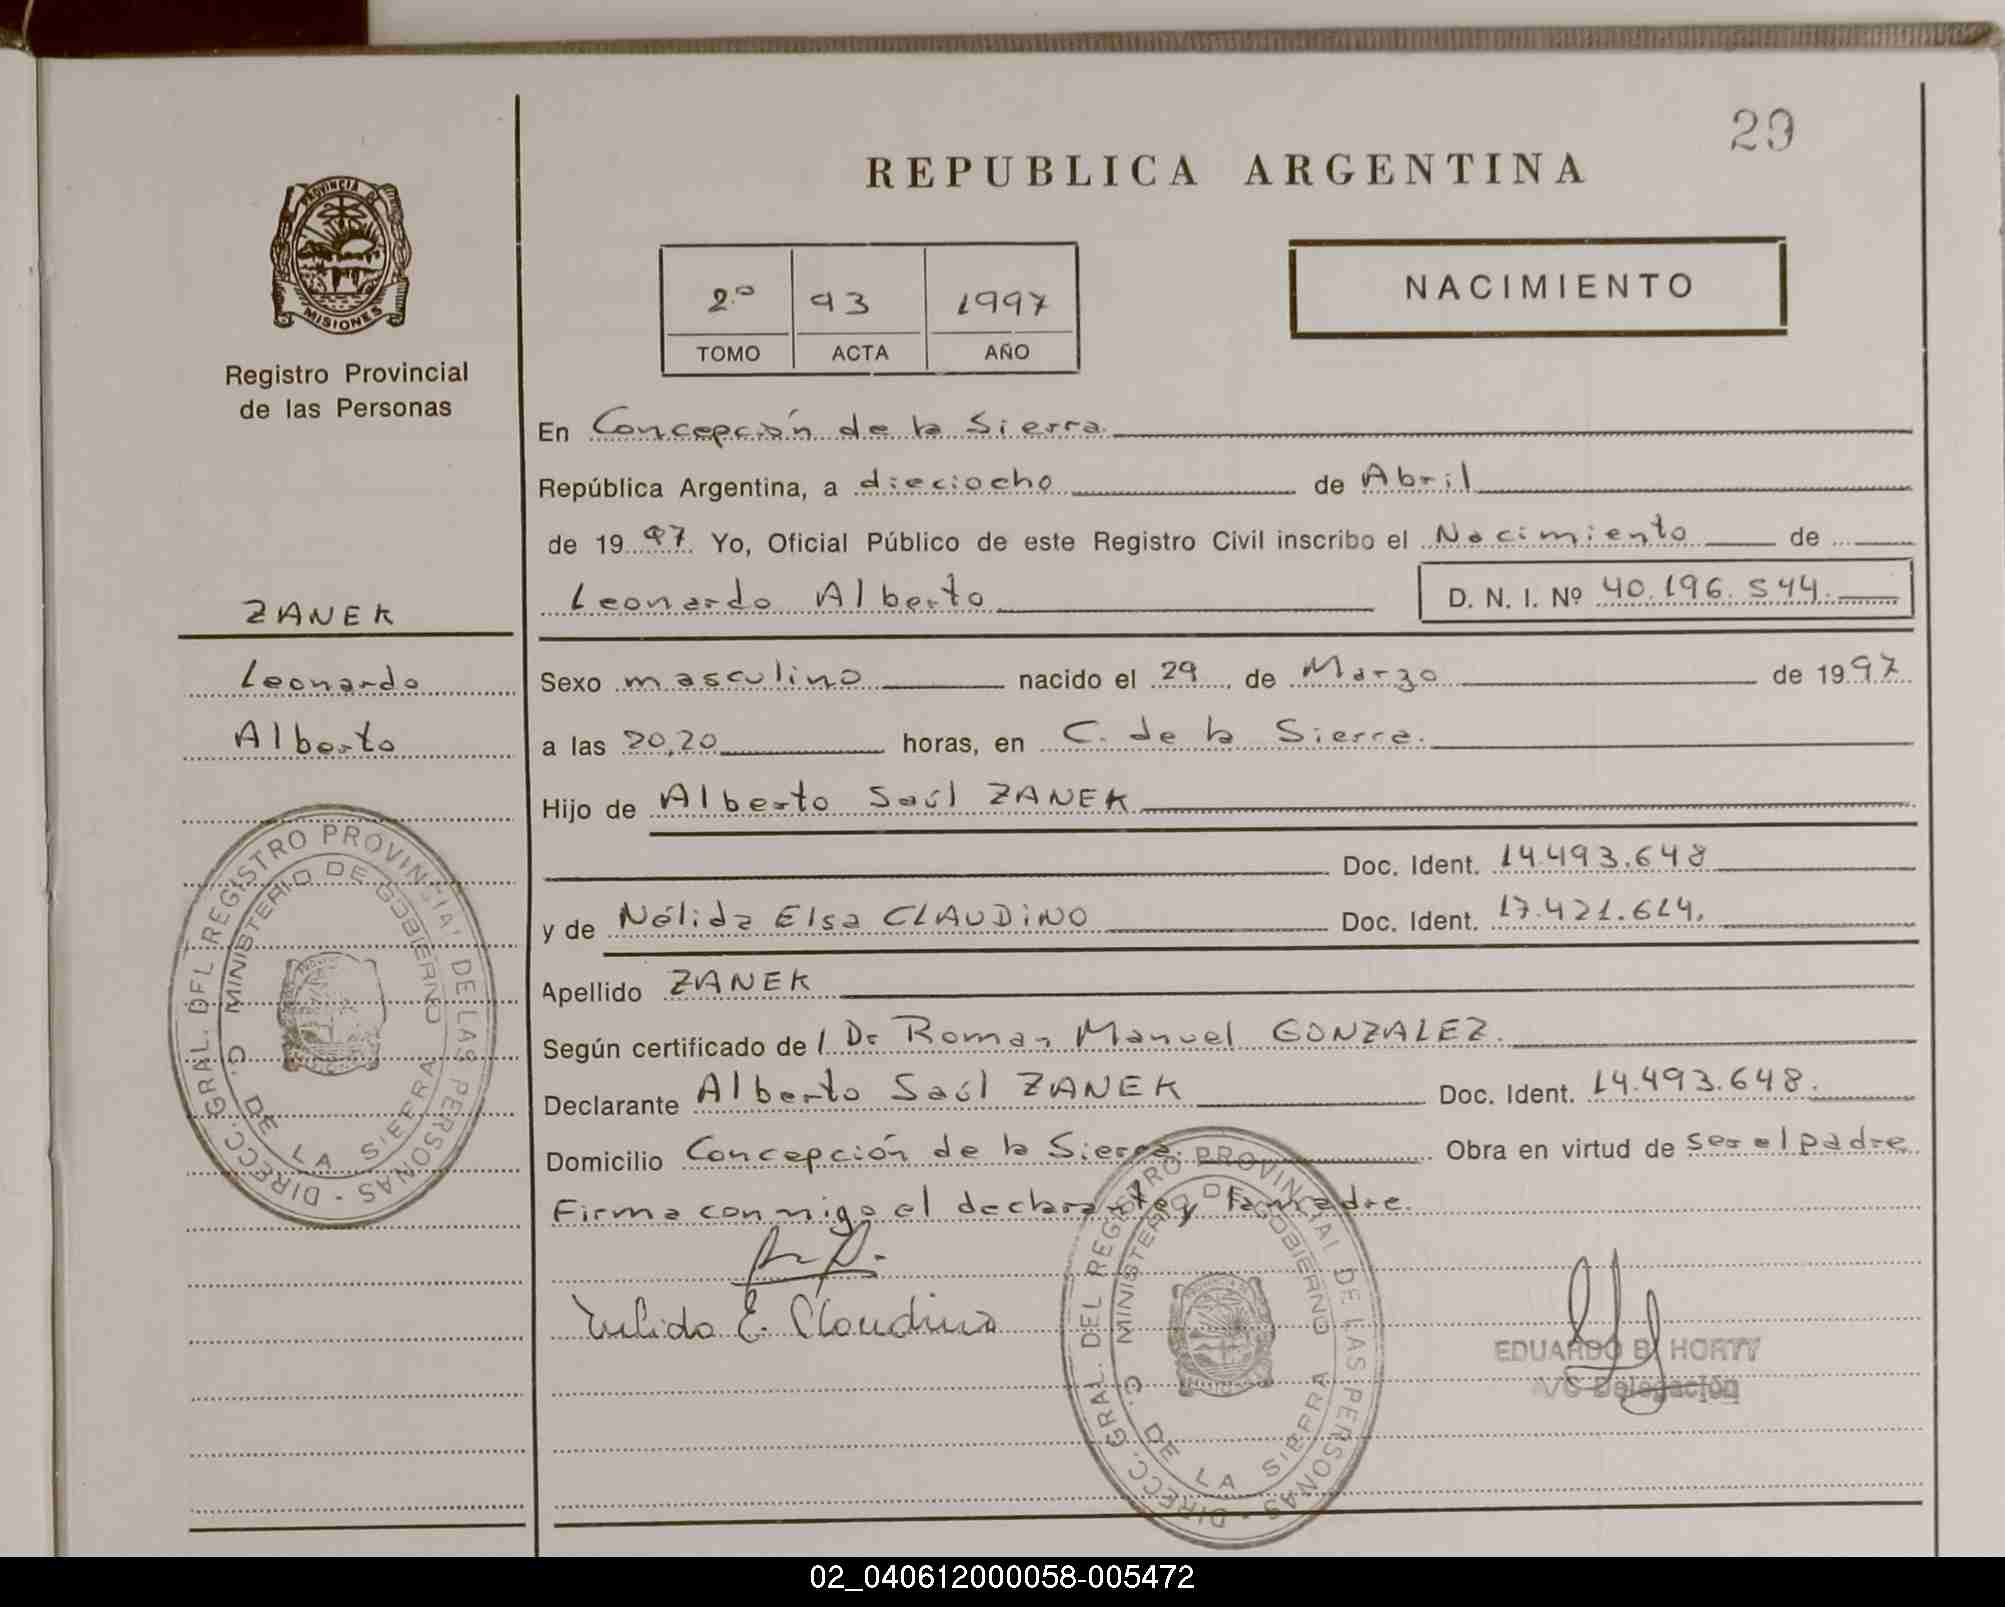 29
REPUBLICA ARGENTINA
PROVINCIA DE
MISIONES
Registro Provincial
de las Personas
2º 93 1997
TOMO ACTA AÑO
NACIMIENTO
En Concepción de la Sierra
República Argentina, a dieciocho de Abril
de 1997. Yo, Oficial Público de este Registro Civil inscribo el Nacimiento de
Leonardo Alberto D. N. I. Nº 40.196.544.
ZANEK
Leonardo
Alberto
Sexo masculino nacido el 29 de Marzo de 1997
a las 20,20 horas, en C. de la Sierra.
Hijo de Alberto Saúl ZANEK
Doc. Ident. 14.493.648
y de Nélida Elsa CLAUDINO Doc. Ident. 17.421.614.
Apellido ZANEK
Según certificado de / Dr Roman Manuel GONZALEZ.
Declarante Alberto Saúl ZANEK Doc. Ident. 14.493.648.
Domicilio Concepción de la Sierra. Obra en virtud de ser el padre
Firma conmigo el declarante y la madre.
Nelida E. Claudino
EDUARDO B. HORTY
Delegación
DIRECC. GRAL. DEL REGISTRO PROVINCIAL DE LAS PERSONAS -
MINISTERIO DE GOBIERNO
C. DE LA SIERRA
DIRECC. GRAL. DEL REGISTRO PROVINCIAL DE LAS PERSONAS -
MINISTERIO DE GOBIERNO
C. DE LA SIERRA
02_040612000058-005472